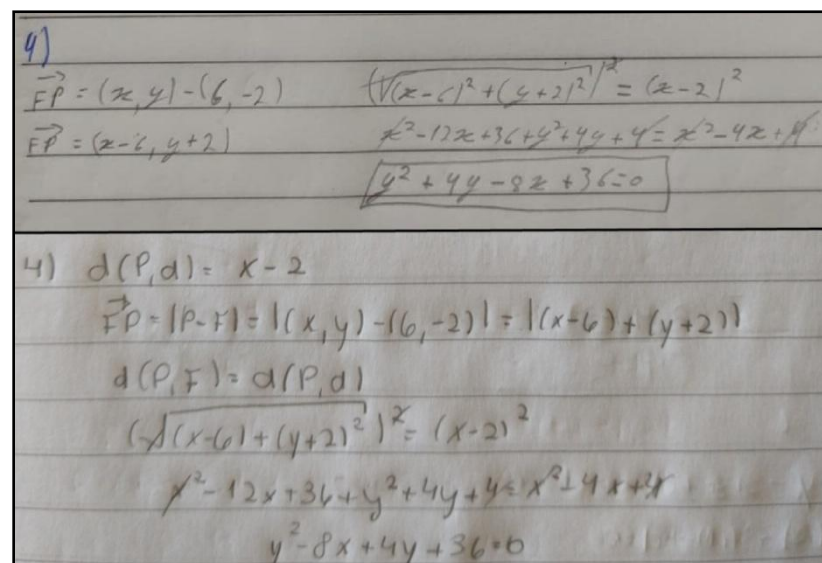 4)
FP⃗ = (x, y) - (6, -2)
FP⃗ = (x-6, y+2)
(√(x-6)²+(y+2)²)² = (x-2)²
x²-12x+36+y²+4y+4=x²-4x+4
y²+4y-8x+36=0
4) d(P,d)= x-2
FP⃗=|P-F|=|(x,y)-(6,-2)|=|(x-6)+(y+2)|
d(P,F)=d(P,d)
(√(x-6)+(y+2)²)²=(x-2)²
x²-12x+36+y²+4y+4=x²-4x+4
y²-8x+4y+36=0